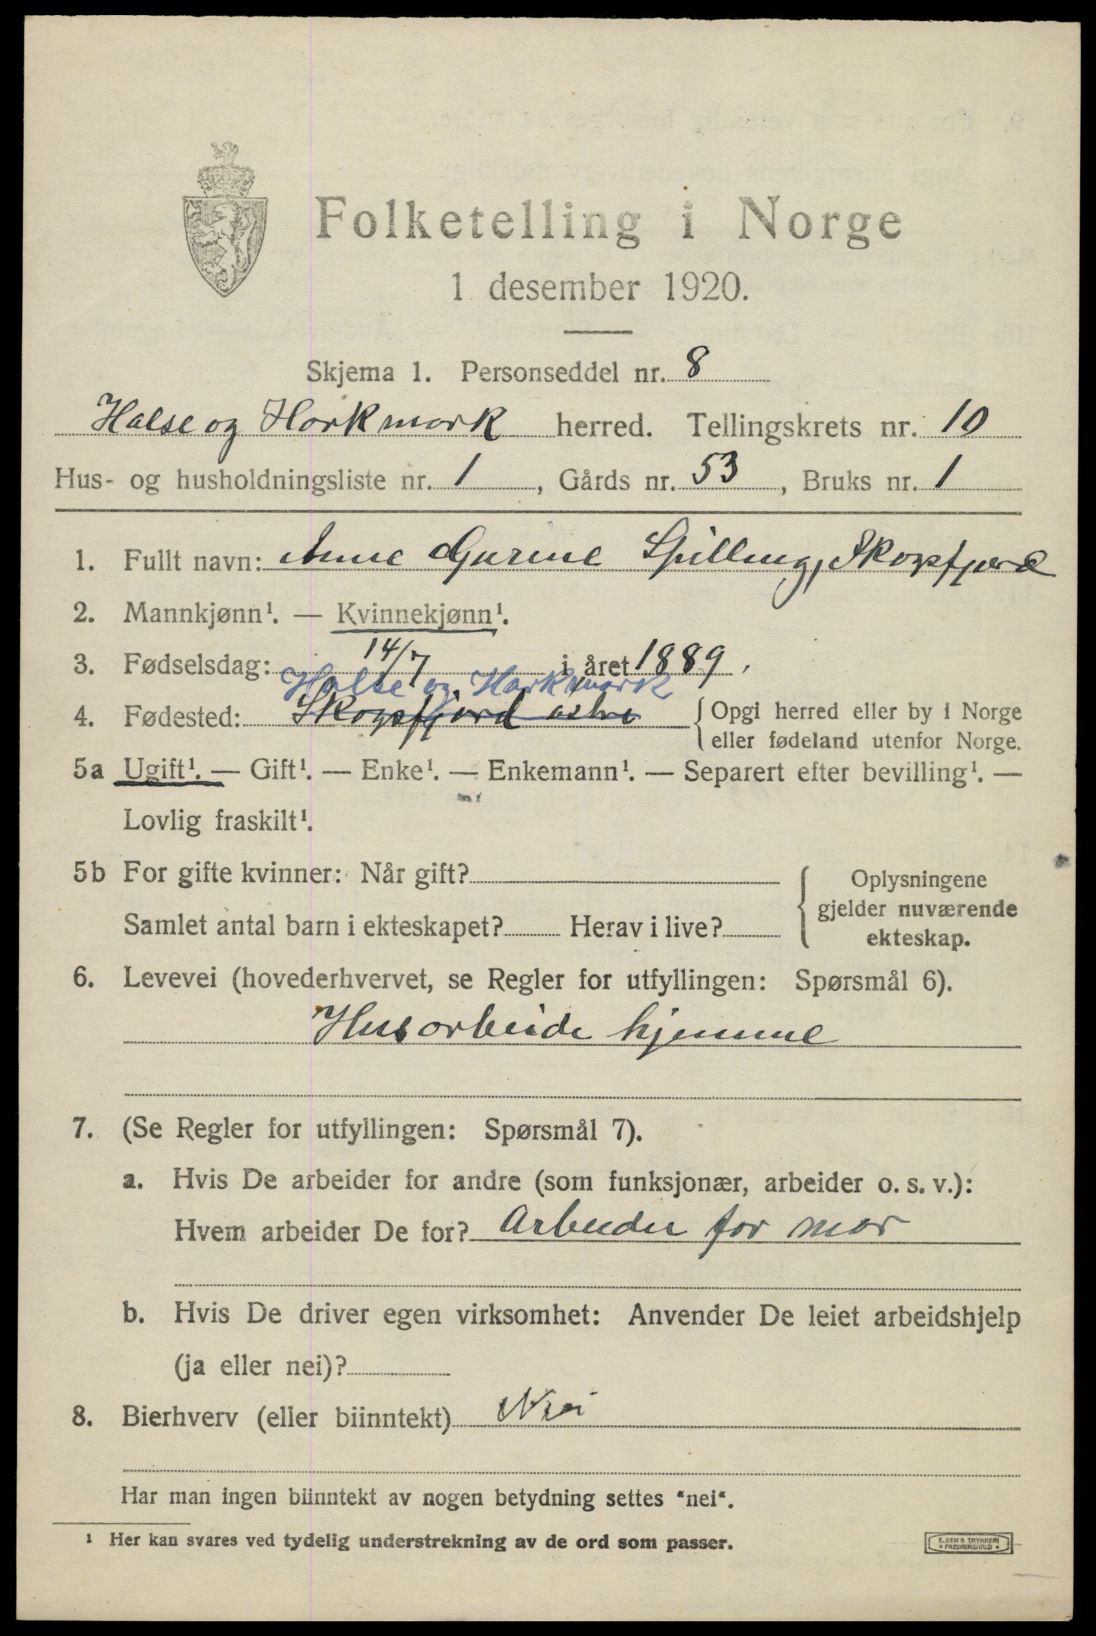 Folketelling i Norge
1 desember 1920.
Skjema 1. Personseddel nr. 8
Halse og Harkmark herred. Tellingskrets nr. 10
Hus- og husholdningsliste nr. 1, Gårds nr. 53, Bruks nr. 1
1. Fullt navn: Anne Gurine Spilling, Skogsfjord
2. Mannkjønn¹. — Kvinnekjønn¹.
3. Fødselsdag: 14/7 i året 1889.
Halse og Harkmark
4. Fødested: Skogsfjord østre {Opgi herred eller by i Norge
eller fødeland utenfor Norge.
5a Ugift¹. — Gift¹. — Enke¹. — Enkemann¹. — Separert efter bevilling¹. —
Lovlig fraskilt¹.
5b For gifte kvinner: Når gift? { Oplysningene
gjelder nuværende
Samlet antal barn i ekteskapet? Herav i live?
ekteskap.
6. Levevei (hovederhvervet, se Regler for utfyllingen: Spørsmål 6).
Husarbeide hjemme
7. (Se Regler for utfyllingen: Spørsmål 7).
a. Hvis De arbeider for andre (som funksjonær, arbeider o. s. v.):
Hvem arbeider De for? Arbeider for mor
b. Hvis De driver egen virksomhet: Anvender De leiet arbeidshjelp
(ja eller nei)?
8. Bierhverv (eller biinntekt) Nei
Har man ingen biinntekt av nogen betydning settes "nei".
¹ Her kan svares ved tydelig understrekning av de ord som passer.